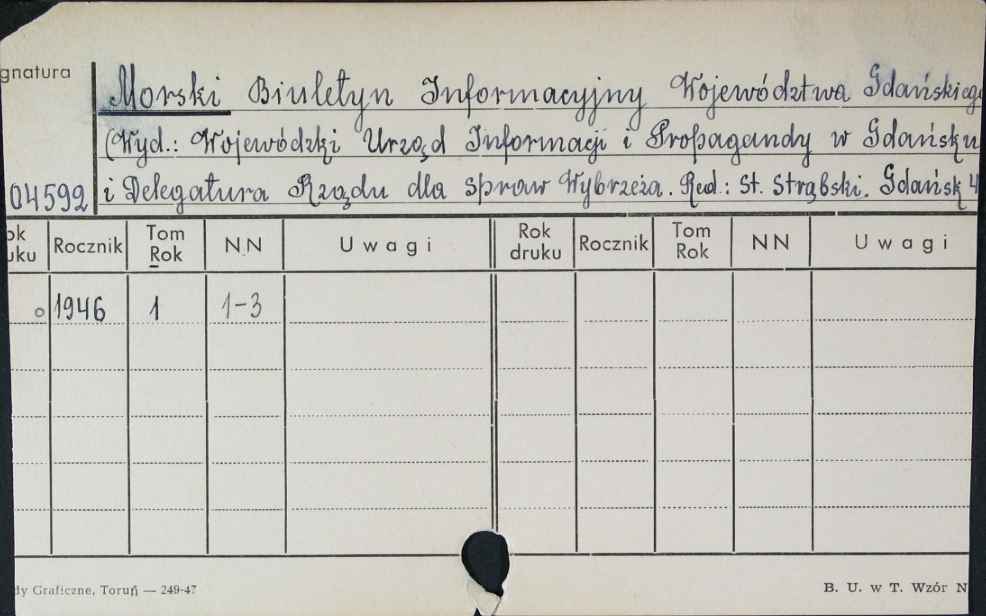 gnatura
Morski Biuletyn Informacyjny Województwa Gdańskieg
(Wyd.: Wojewódzki Urząd Informacji i Propagandy w Gdańsku
04592 i Delegatura Rządu dla spraw Wybrzeża. Red.: St. Strąbski. Gdańsk 4
ok uku Rocznik Tom Rok NN Uwagi Rok druku Rocznik Tom Rok NN Uwagi
o 1946 1 1-3
dy Graficzne, Toruń — 249-47 B. U. w T. Wzór N